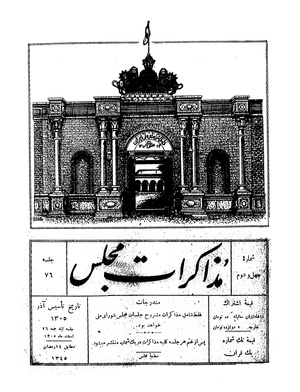 مذاکرات مجلس
شماره
چهل و دوم
جلسه
۷۶
تاریخ تأسیس آذر
۱۳۰۵
مطابق ۱۴ رمضان
۱۳۴۵
مندرجات
فقط شامل مذاکرات مشروح جلسات مجلس شورای ملی
خواهد بود.
پس از ختم هر جلسه کلیه مذاکرات در یک شماره منتشر میشود.
مطبعه مجلس
قیمت اشتراک
خارجه دوازده تومان
قیمت تک شماره
یک قران